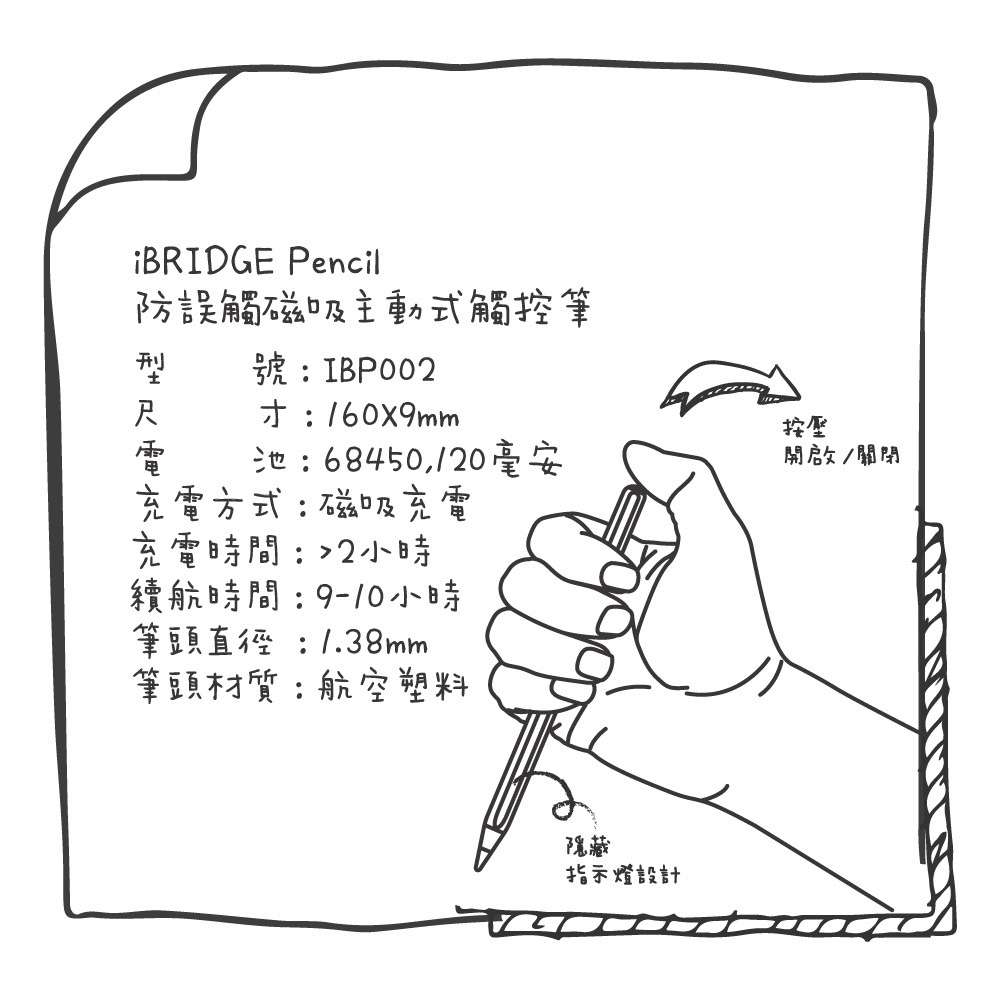 iBRIDGE Pencil
防誤觸磁吸主動式觸控筆
型 號：IBP002
尺 寸：160X9mm
電 池：68450,120毫安
充電方式：磁吸充電
充電時間：>2小時
續航時間：9-10小時
筆頭直徑：1.38mm
筆頭材質：航空塑料
按壓
開啟/關閉
隱藏
指示燈設計